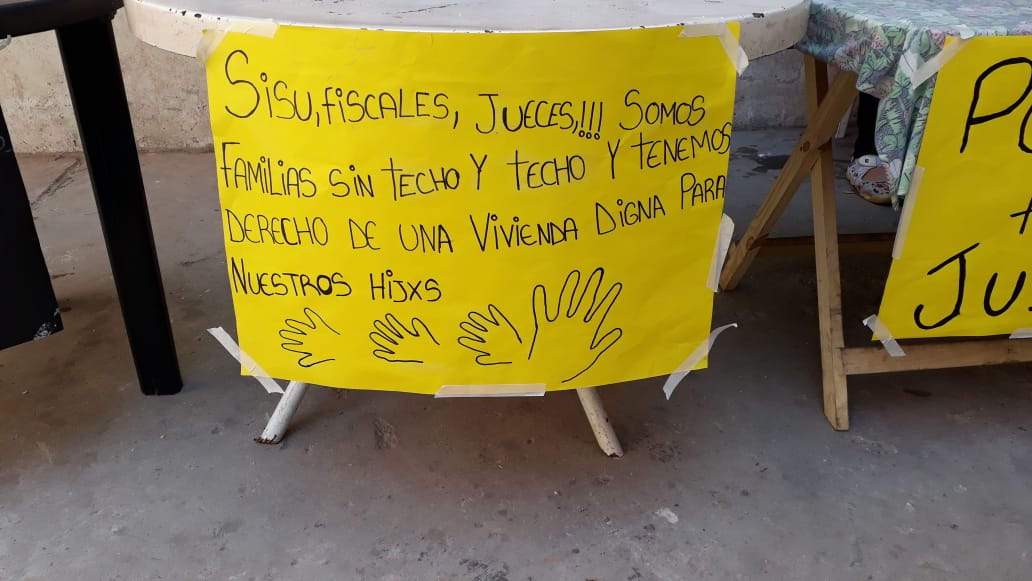 SiSU, FiSCALES, JUECES,!!! SOMOS
FAMiLiAS SiN TECHO Y TECHO Y TENEMOS
DERECHO DE UNA ViViENDA DiGNA PARA
NUESTROS HiJXS
JU